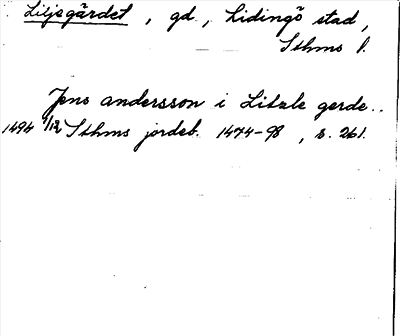 Liljegärdet, gd., Lidingö stad,
Sthms l.
Jens andersson i Litzle gerde..
1494 1/12 Sthms jordeb. 1474-98, s. 261.